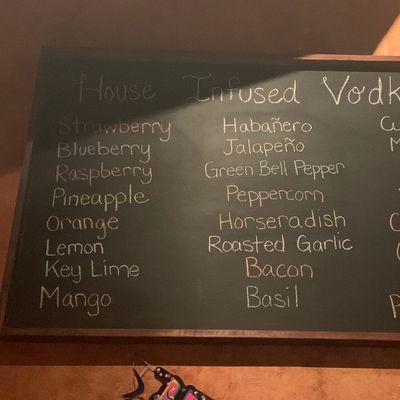 House Infused Vodk
Strawberry
Blueberry
Raspberry
Pineapple
Orange
Lemon
Key Lime
Mango
Habañero
Jalapeño
Green Bell Pepper
Peppercorn
Horseradish
Roasted Garlic
Bacon
Basil
Cu